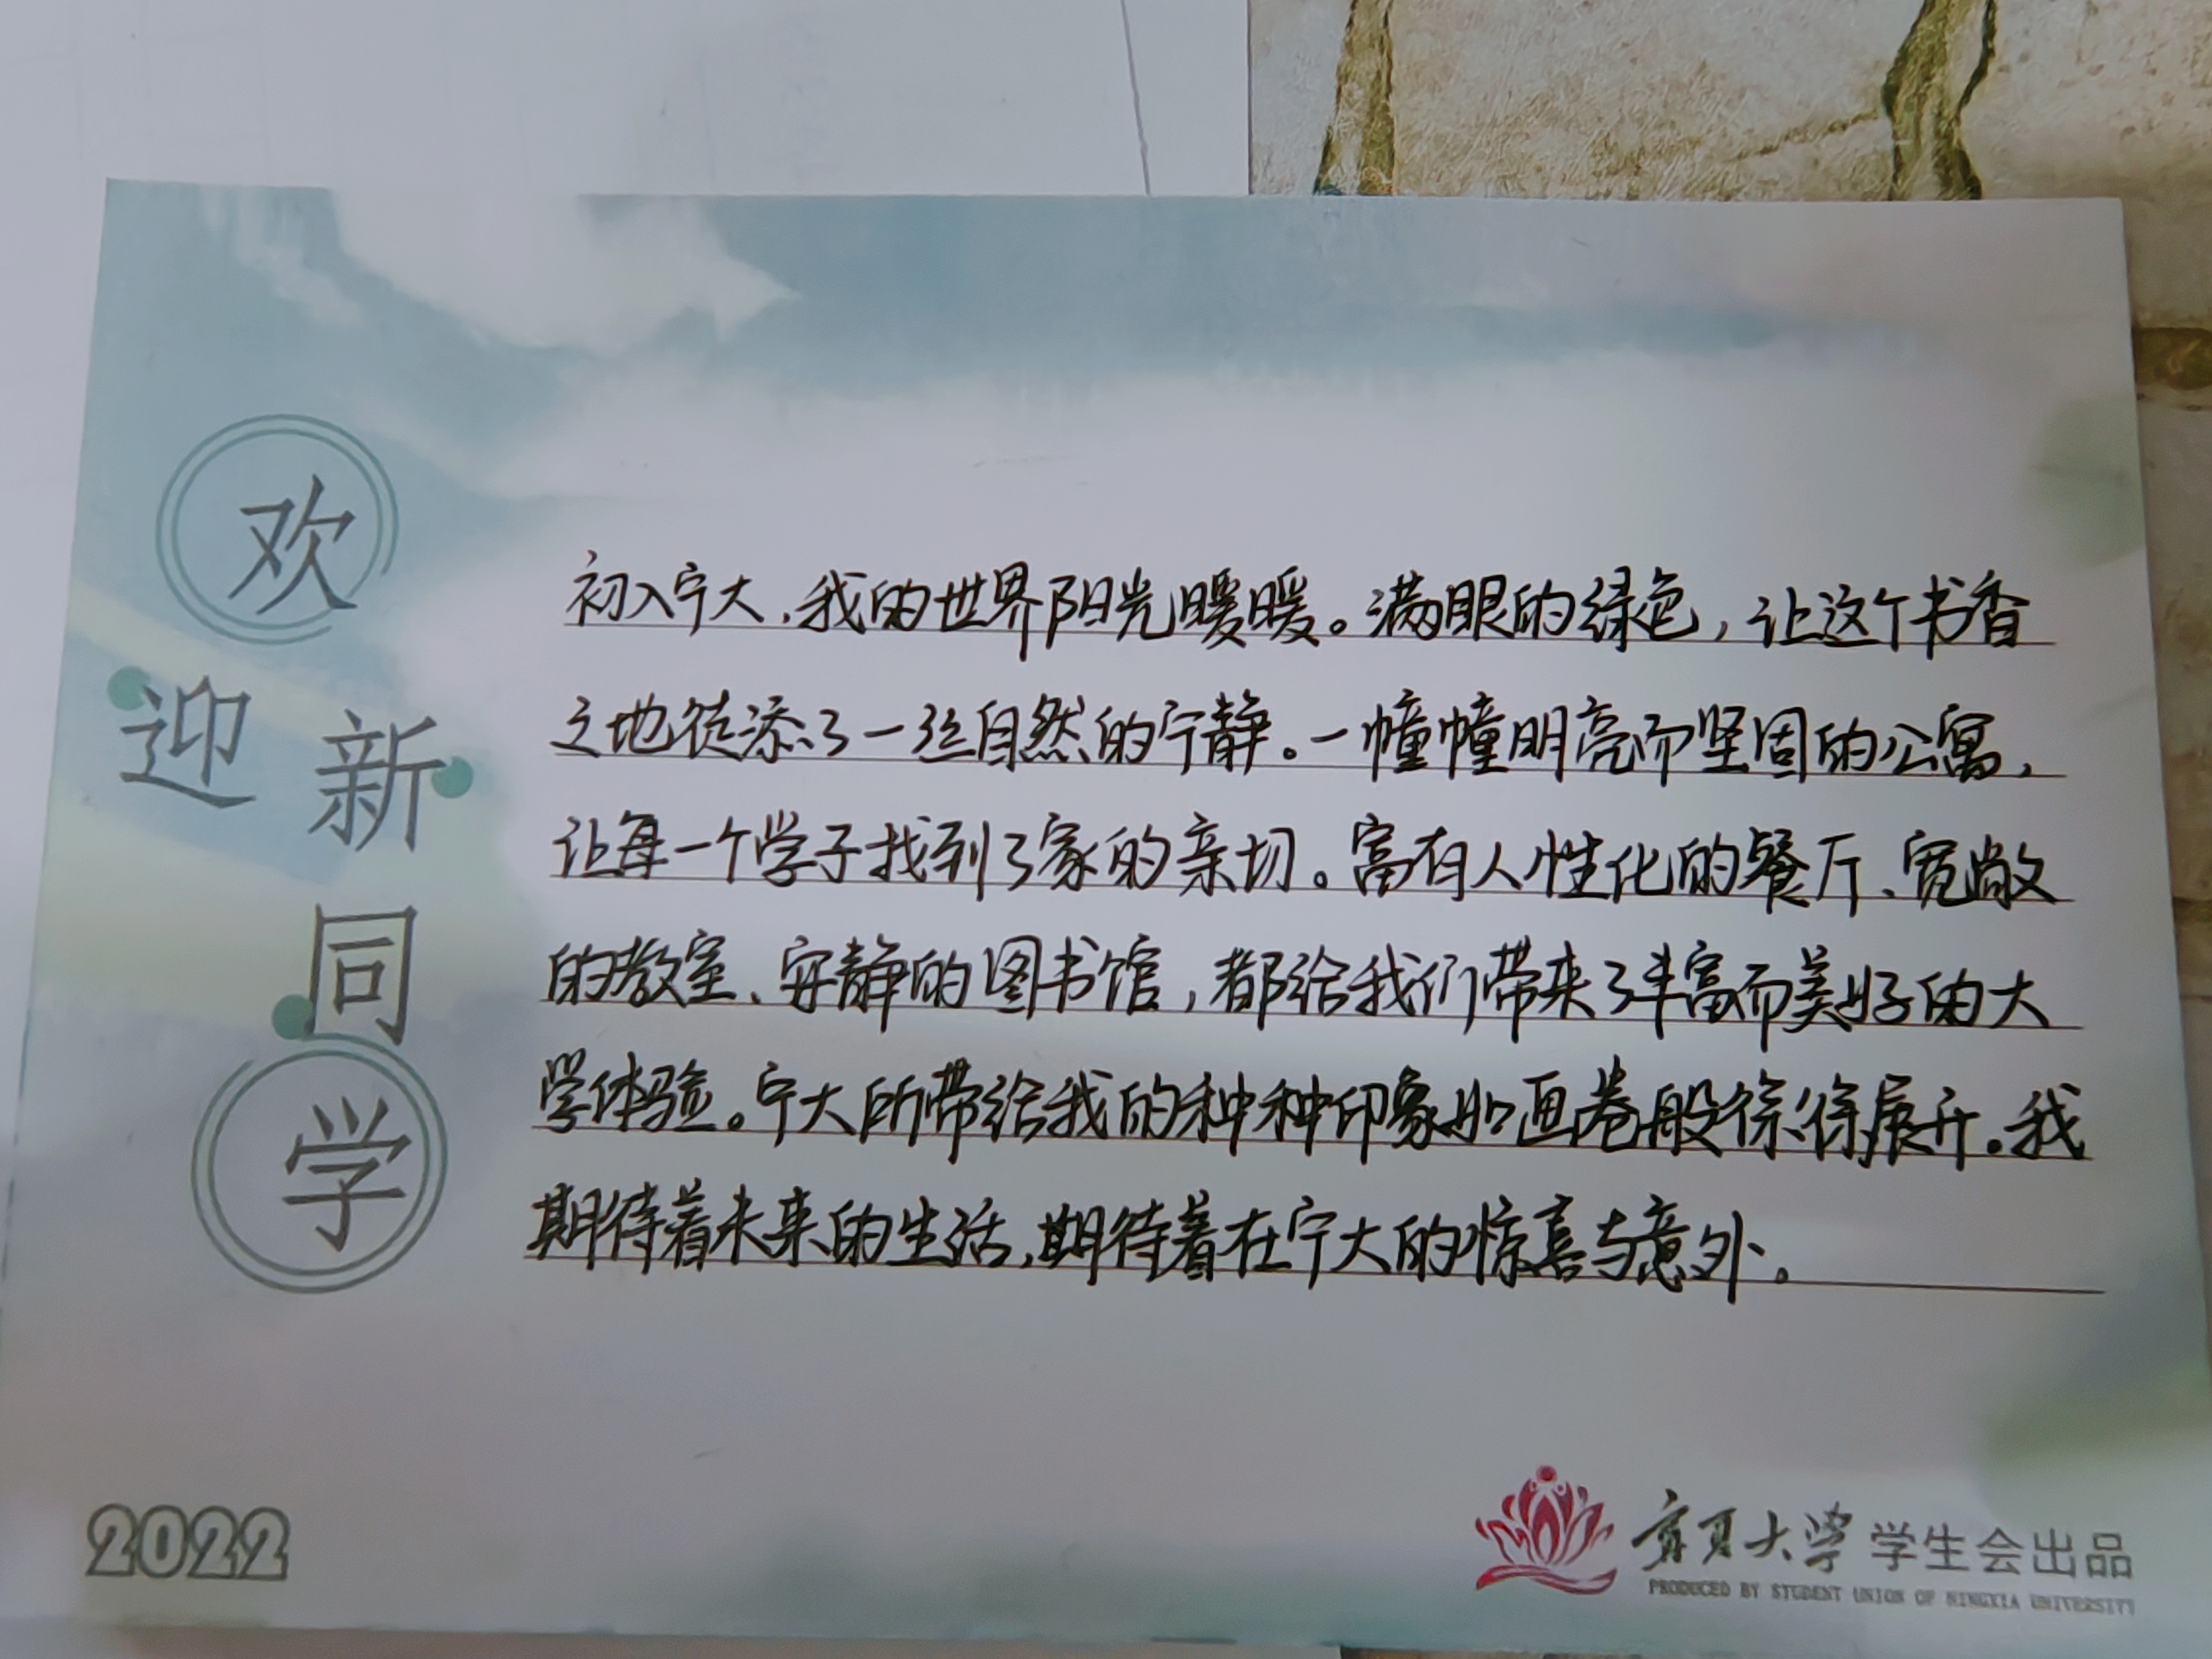 欢
迎
新
同
学
初入宁大，我的世界阳光暖暖。满眼的绿色，让这个书香
之地徒添了一丝自然的宁静。一幢幢明亮而坚固的公寓，
让每一个学子找到了家的亲切。富有人性化的餐厅、宽敞
的教室、安静的图书馆，都给我们带来了丰富而美好的大
学体验。宁大所带给我的种种印象如画卷般徐徐展开。我
期待着未来的生活，期待着在宁大的惊喜与意外。
2022
宁夏大学 学生会出品
PRODUCED BY STUDENT UNION OF NINGXIA UNIVERSITY